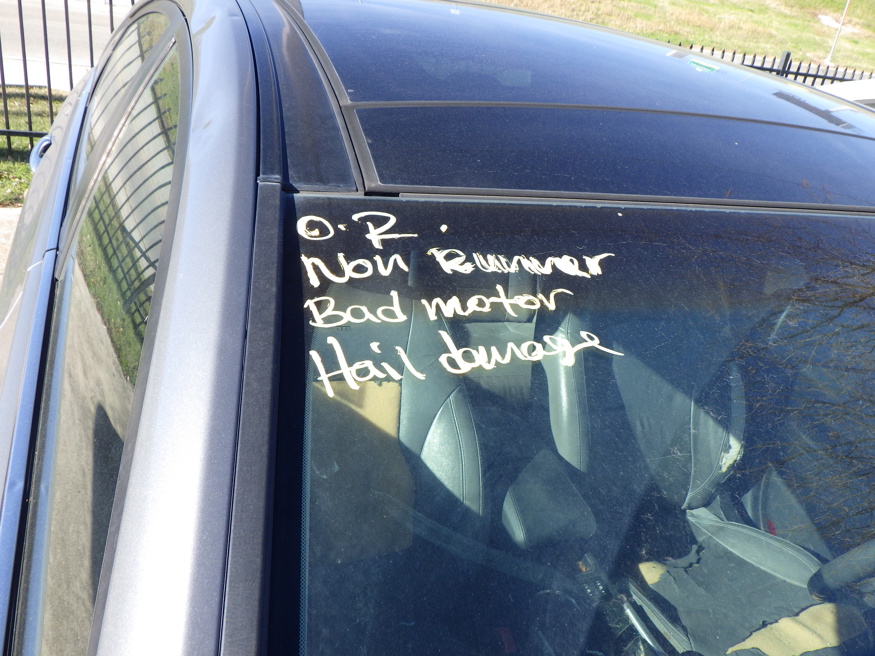 O.R.
Non Runner
Bad motor
Hail damage